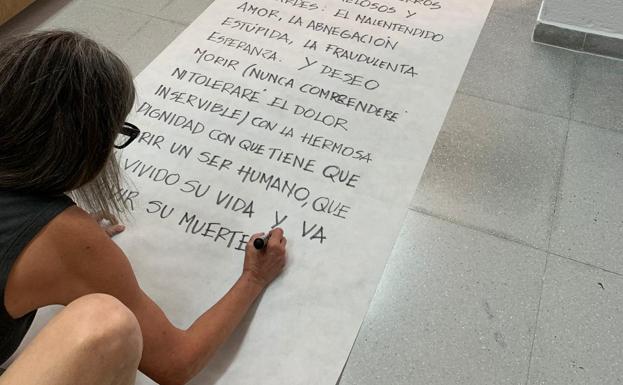 ROS
ELOSOS Y
RDES: EL MALENTENDIDO
AMOR, LA ABNEGACIÓN
ESTUPIDA, LA FRAUDULENTA
ESPERANZA. Y DESEO
MORIR (NUNCA COMPRENDERÉ
NI TOLERARÉ EL DOLOR
INSERVIBLE) CON LA HERMOSA
DIGNIDAD CON QUE TIENE QUE
RIR UN SER HUMANO, QUE
VIVIDO SU VIDA Y VA
IR SU MUERTE